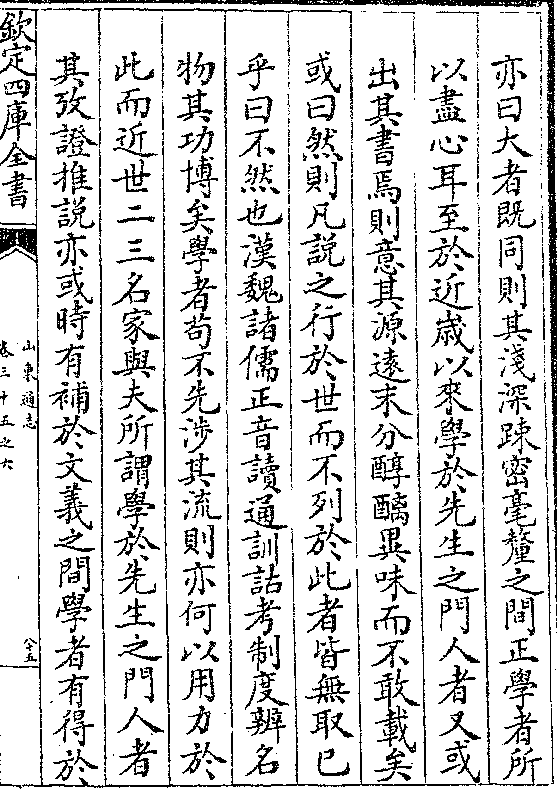 亦曰大者既同則其淺深踈密毫釐之間正學者所
以盡心耳至於近歳以來學於先生之門人者又或
出其書焉則意其源逺末分醇醨異味而不敢載矣
或曰然則凡説之行於世而不列於此者皆無取已
乎曰不然也漢魏諸儒正音讀通訓詁考制度辨名
物其功博矣學者茍不先涉其流則亦何以用力於
此而近世二三名家與夫所謂學於先生之門人者
其攷證推説亦或時有補於文義之間學者有得於
欽定四庫全書
山東通志
卷三十五之六
八十五